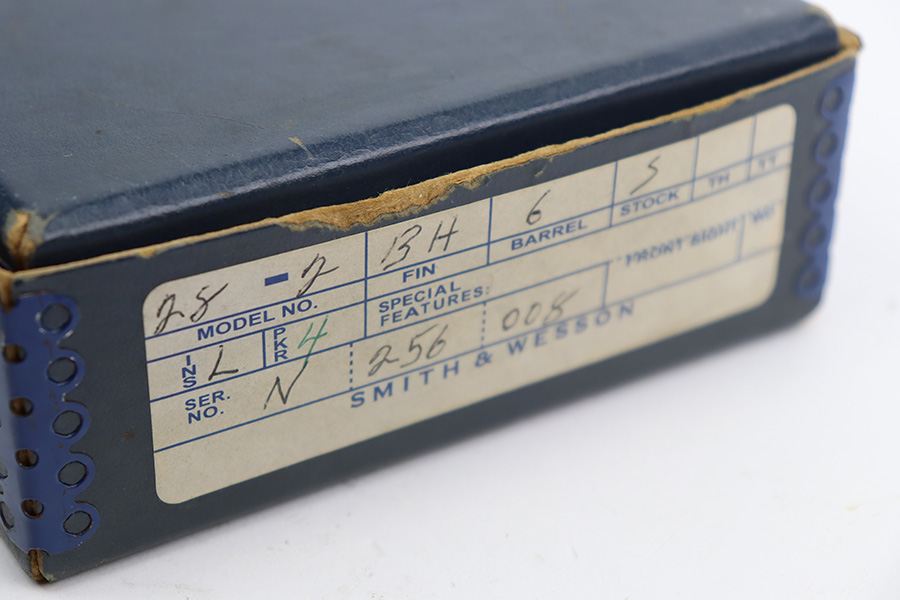 28 - 2 BH 6 S
MODEL NO. FIN BARREL STOCK TH TT
INS L PKR 4 SPECIAL FEATURES: FRONT SIGHT
SER. NO. N 256 008
SMITH & WESSON